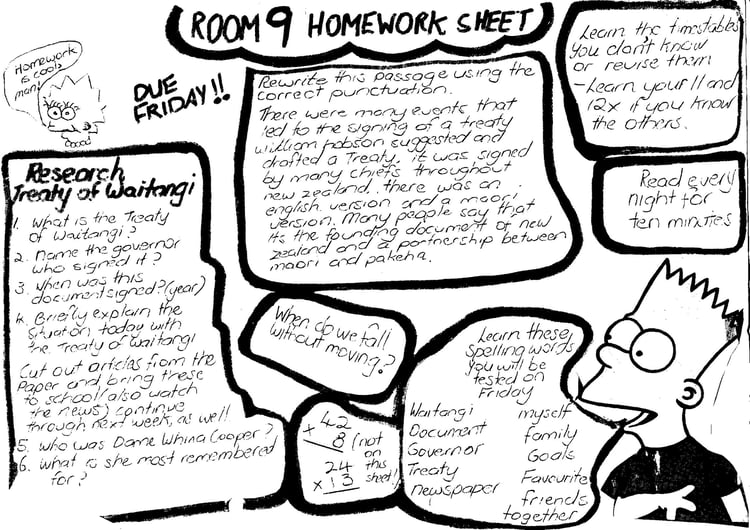 ROOM 9 HOMEWORK SHEET
Homework
is cool
man!
DUE
FRIDAY!!
Rewrite this passage using the
correct punctuation.
There were many events that
led to the signing of a treaty
william hobson suggested and
drafted a Treaty. it was signed
by many chiefs throughout
new zealand. there was an
english version and a maori
version. Many people say that
its the founding document of new
zealand and a partnership between
maori and pakeha.
Learn the timestables
you don't know
or revise them
- Learn your 11 and
12x if you know
the others.
Read every
night for
ten minutes
Research
Treaty of Waitangi
1. What is the Treaty
of Waitangi?
2. Name the governor
who signed it?
3. When was this
document signed? (year)
4. Briefly explain the
situation today with
the Treaty of Waitangi
Cut out articles from the
Paper and bring these
to school (also watch
the news) continue
through next week, as well
5. Who was Dame Whina Cooper?
6. What is she most remembered
for?
When do we fall
without moving?
42
x 8
24
x 13
(not
on
this
sheet!)
Learn these
spelling words
you will be
tested on
Friday
Waitangi myself
Document family
Governor Goals
Treaty Favourite
newspaper friends
together